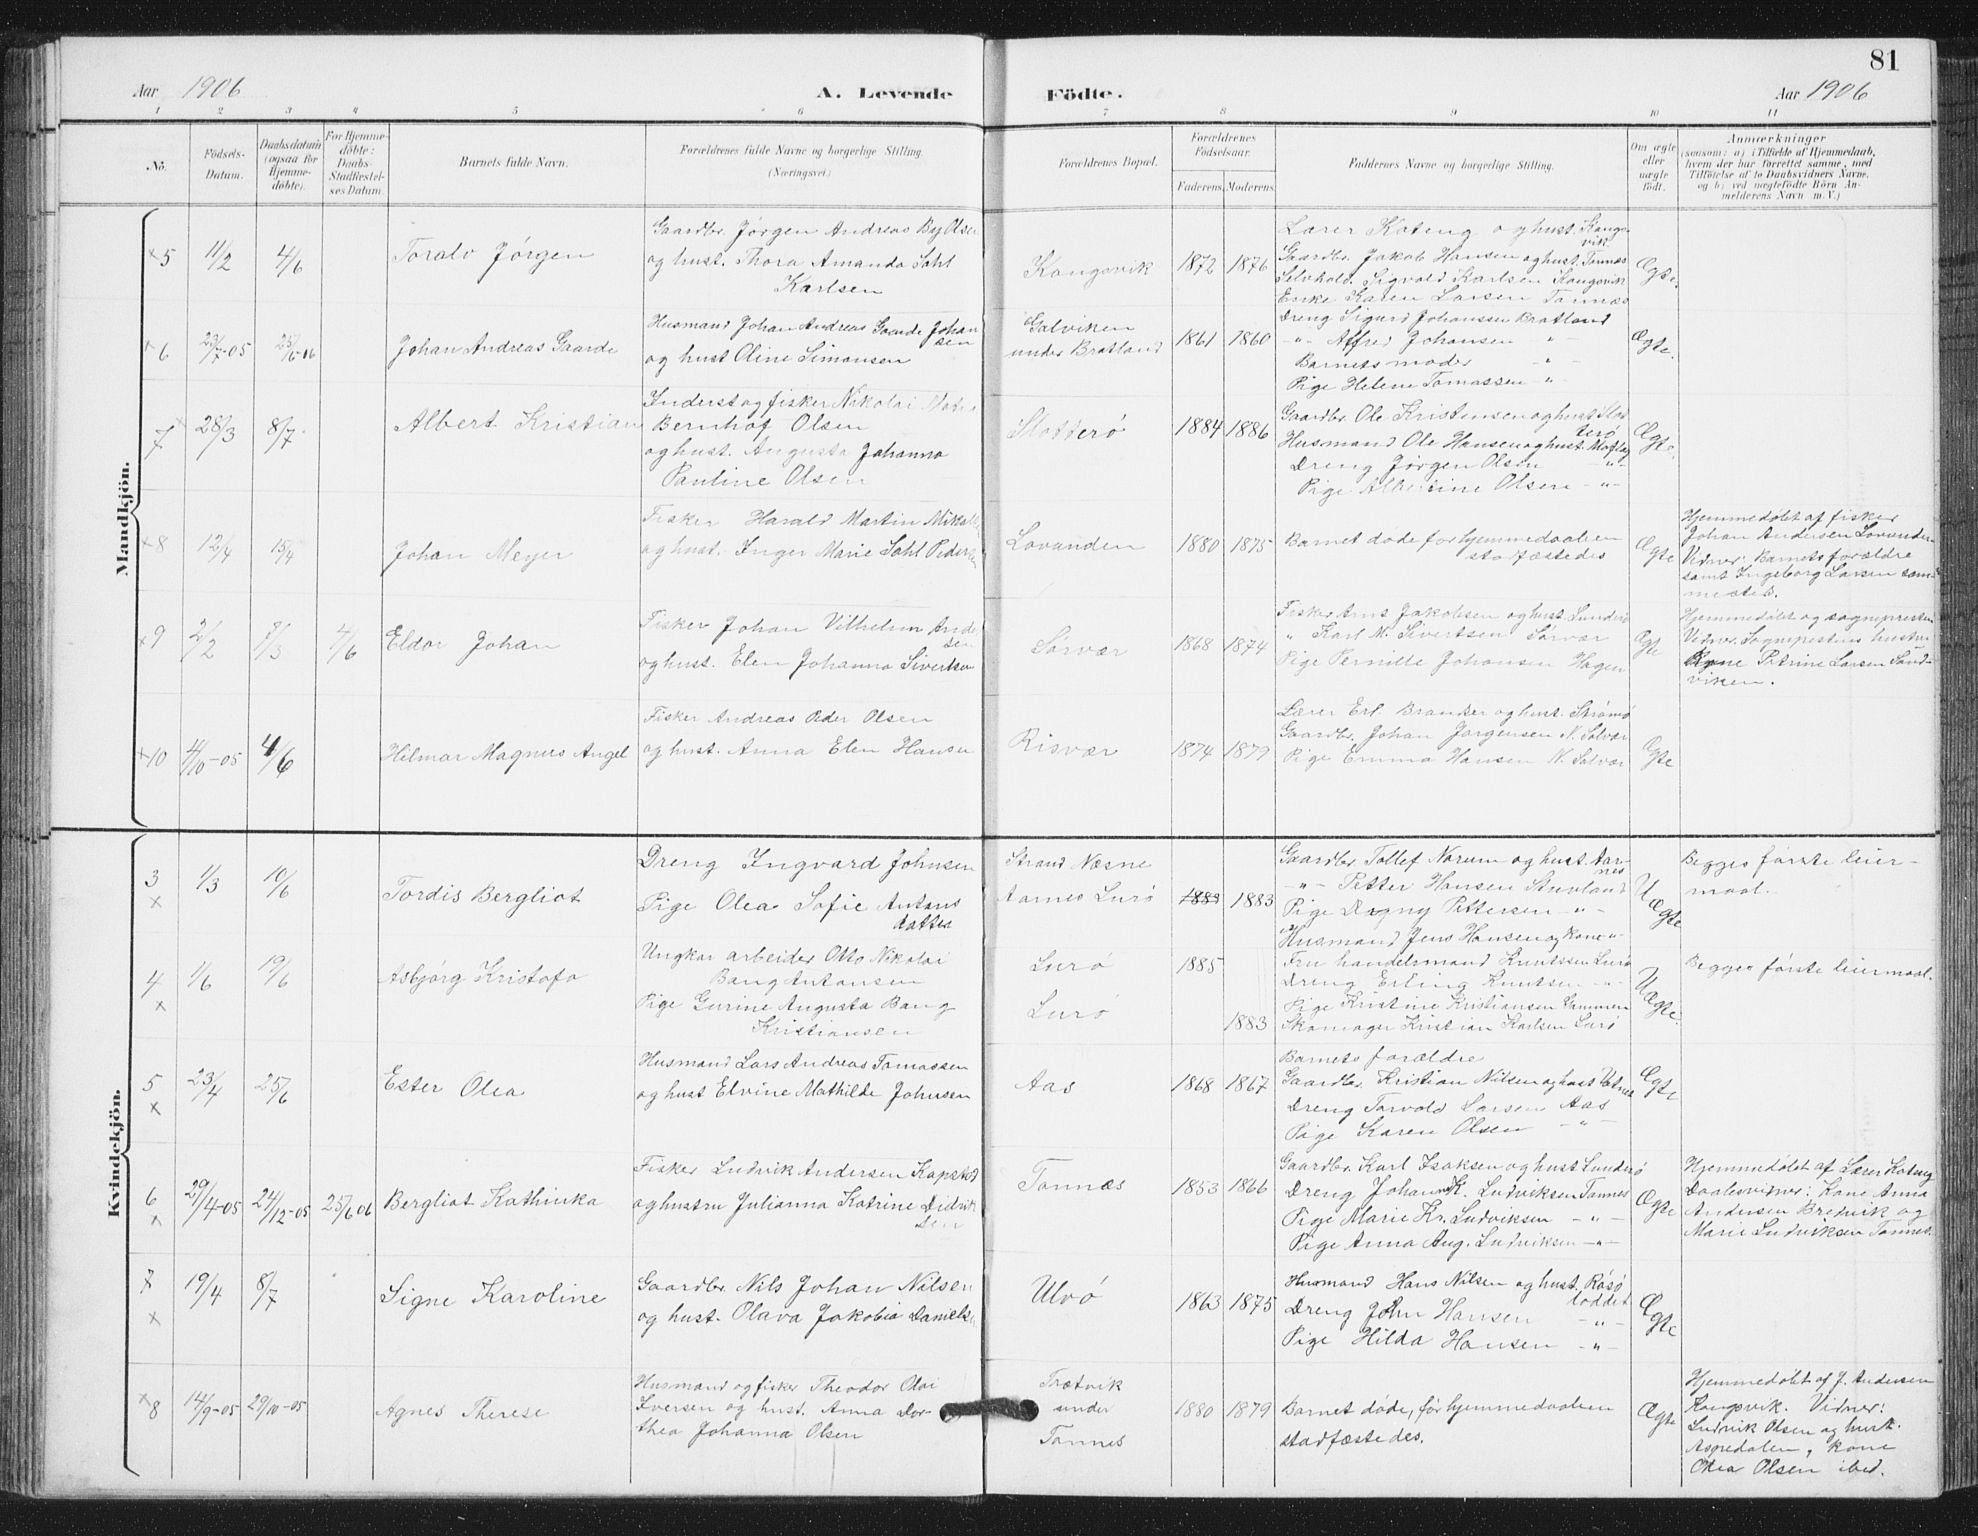 Aar 1906 A. Levende Födte. Aar 1906 81
1 2 3 4 5 6 7 8 9 10 11
No. Födsels-Datum. Daabsdatum (ogsaa for Hjemme-döbte). For Hjemme-döbte: Daabs-Stadfæstel-ses Datum. Barnets fulde Navn. Forældrenes fulde Navne og borgerlige Stilling. (Næringsvei.) Forældrenes Bopæl. Forældrenes Födselsaar. Faderens. Moderens. Faddernes Navne og borgerlige Stilling. Om ægte eller uægte födt. Anmærkninger (saasom: a) i Tilfælde af Hjemmedaab, hvem der har forrettet samme, med Tilföielse af to Daabsvidners Navne, og b) ved uægtefödte Börn An-melderens Navn m. V.)
Mandkjön.
×5 11/2 4/6 Toralv Jørgen
Gaardbr. Jørgen Andreas By Olsen
og hust. Thora Amanda Sohl
Karlsen
Kongsvik 1872 1876
Lærer Koteng og hust. Kongs
vik
Gaardbr. Jakob Hansen og hust. Tonnes
Selvhold. Sigvald Karlsen Kongsvik
Enke Karen Larsen Tonnes
Ægte.
×6 23/7-05 25/6 06 Johan Andreas Gaarde
Husmand Johan Andreas Gaarde Johan
sen
og hust Oline Simonsen
Galviken
under Bratland 1861 1860
Dreng Sigurd Johanssen Bratland
-"- Alfred Johansen -"-
Barnets moder -"-
Pige Helene Tomassen -"-
Ægte.
7 × 28/3 8/7 Albert Kristian
Inderst og fisker Nikolai
Bernhof Olsen
og hust. Augusta Johanna
Pauline Olsen
Slotterø 1884 1886
Gaardbr. Ole Kristensen og hust Slot
terø
Husmand Ole Hansen og hust.
Dreng Jørgen Olsen -"-
Pige Albertine Olsen -"-
Ægte.
×8 12/4 15/4 Johan Meyer
Fisker Harald Martin
og hust. Inger Marie Sohl Pedersen
Lovunden 1880 1875
Barnet døde før hjemmedaaben
stadfæstedes
Ægte
Hjemmedøbt af fisker
Johan Andersen Lovunden
Vidner: Barnets forældre
samt Ingeborg Larsen sam-
mested.
×9 2/2 7/3 4/6 Eldor Johan
Fisker Johan Vilhelm Ander
sen
og hust. Elen Johanna Sivertsen
Sørvær 1868 1874
Fisker Jakobsen og hust.
" Karl M. Sivertsen Sørvær
Pige Pernille Johansen Hagen
Ægte
Hjemmedøbt og sognepresten
Vidner. Sogneprestens hustru
Petrine Larsen Sand-
viken.
×10 4/10-05 4/6 Hilmar Magnus Angel
Fisker Andreas Peder Olsen
og hust. Anna Elen Hansen
Risvær 1874 1879
Lærer Erl. og hust. Strømø
Gaardbr. Johan Jørgensen N. Solvær
Pige Emma Hansen N. Solvær
Ægte
Kvindekjön.
3 × 1/3 10/6 Tordis Bergliot
Dreng Ingvard Johnsen
Pige Olea Sofie Antons
datter
Strand Næsne
Aarnes Lurø 1883 1883
Gaardbr. Tollef Norum og hust. Aar-
nes
-"- Petter Hansen Stuvland
Pige Dagny Pettersen -"-
Husmand Jens Hansen og kone -"-
Uægte
Begges første leier-
maal.
4 × 1/6 19/6 Asbjørg Kristofa
Ungkar arbeider Otto Nikolai
Bang Antonsen
Pige Gurine Augusta Bang
Kristiansen
Lurø 1885
Lurø 1883
Fru handelsmand Knutssen Lurø
Dreng Erling Knutsen -"-
Pige Kristine Kristiansen
Skomager Kristian Karlsen Lurø
Uægte.
Begges første leiermaal.
5 × 23/4 25/6 Ester Olea
Husmand Lars Andreas Tomassen
og hust Elvine Mathilde Johnsen
Aas 1868 1867
Barnets forældre
Gaardbr. Kristian Nilsen og hust
Dreng Torvold Larsen Aas
Pige Karen Olsen -"-
Ægte
6 × 29/4-05 24/12-05 25/6 06 Bergliot Kathinka
Fisker Ludvik Andersen Kapstad
og hustru Julianna Katrine Didrik
sen
Tonnæs 1853 1866
Gaardbr. Karl Isaksen og hust Sunderø
Dreng Johan K. Ludviksen Tonnes
Pige Marie Kr. Ludviksen -"-
Pige Anna Aug. Ludviksen -"-
Ægte
Hjemmedøbt af Lærer Koteng
Daabsvidner: Kone Anna
Andersen Bredvik og
Marie Ludviksen Tonnes.
7 × 19/4 8/7 Signe Karoline
Gaardbr. Nils Johan Nilsen
og hust. Olava Jakobia Danielsen
Ulvø 1863 1875
Husmand Hans Nilsen og hust. Røsø
loddet
Dreng John Hansen -"-
Pige Hilda Hansen -"-
Ægte
×8 14/9-05 29/10-05 Agnes Therese
Husmand og fisker Theodor Olai
Iversen og hust. Anna Dor-
thea Johanna Olsen
Trætvik
under
Tonnes 1880 1879
Barnet døde, før hjemmedaaben
stadfæstedes.
Ægte
Hjemmedøbt af J. Andersen
Kongsvik. Vidner:
Ludvik Olsen og hust.
Aspedalen, kone
Olea Olsen ibid.